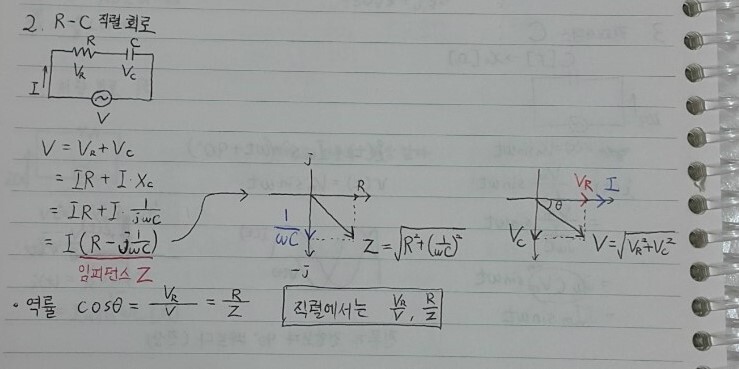 2. R-C 직렬 회로
R C
V_R V_C
I
V
V = V_R + V_C
= IR + I · X_C
= IR + I · 1/jωC
= I (R - j 1/ωC)
임피던스 Z
j
R
1/ωC
-j
Z = √(R² + (1/ωC)²)
V_R I
θ
V_C
V = √(V_R² + V_C²)
· 역률 cosθ = V_R/V = R/Z
직렬에서는 V_R/V, R/Z